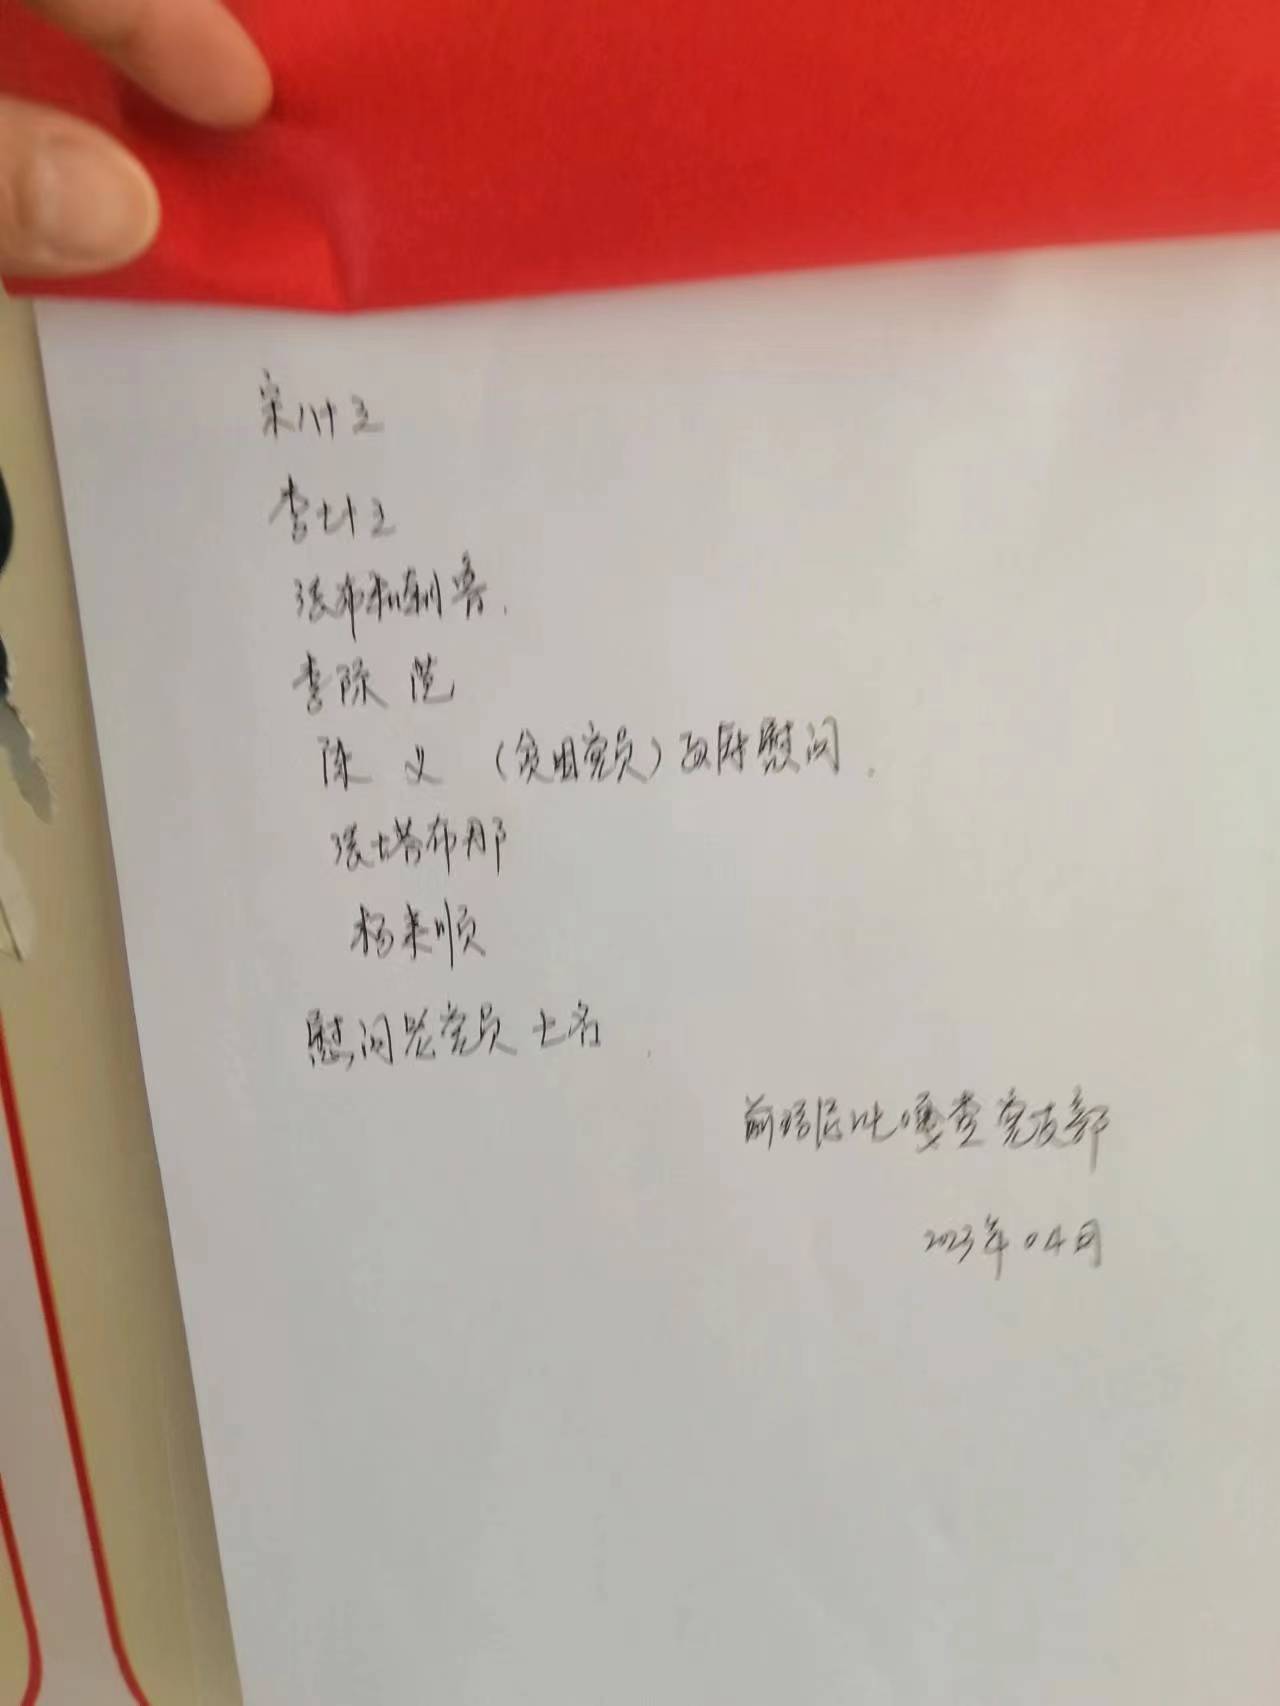 宋八十三
李七十三
张布和朝鲁.
李陈范
陈 义 (贫困党员)政府慰问.
张塔布那
杨来顺
慰问老党员七名.
嘎查党支部
2023年04月